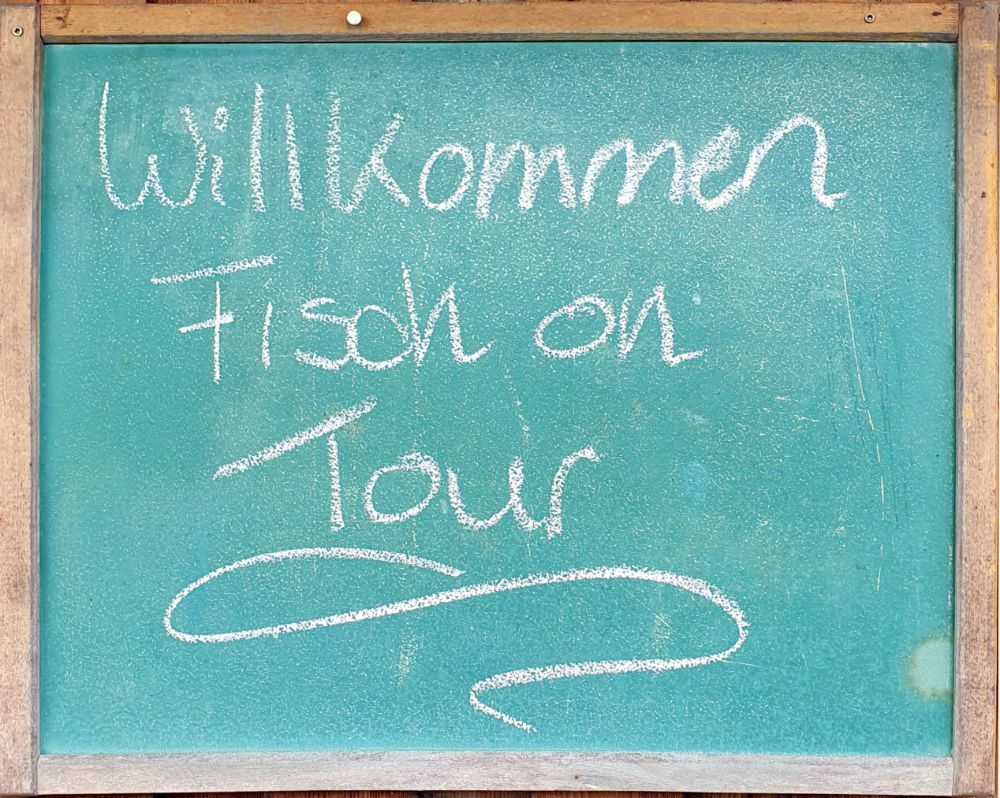 Willkommen
Fisch on
Tour